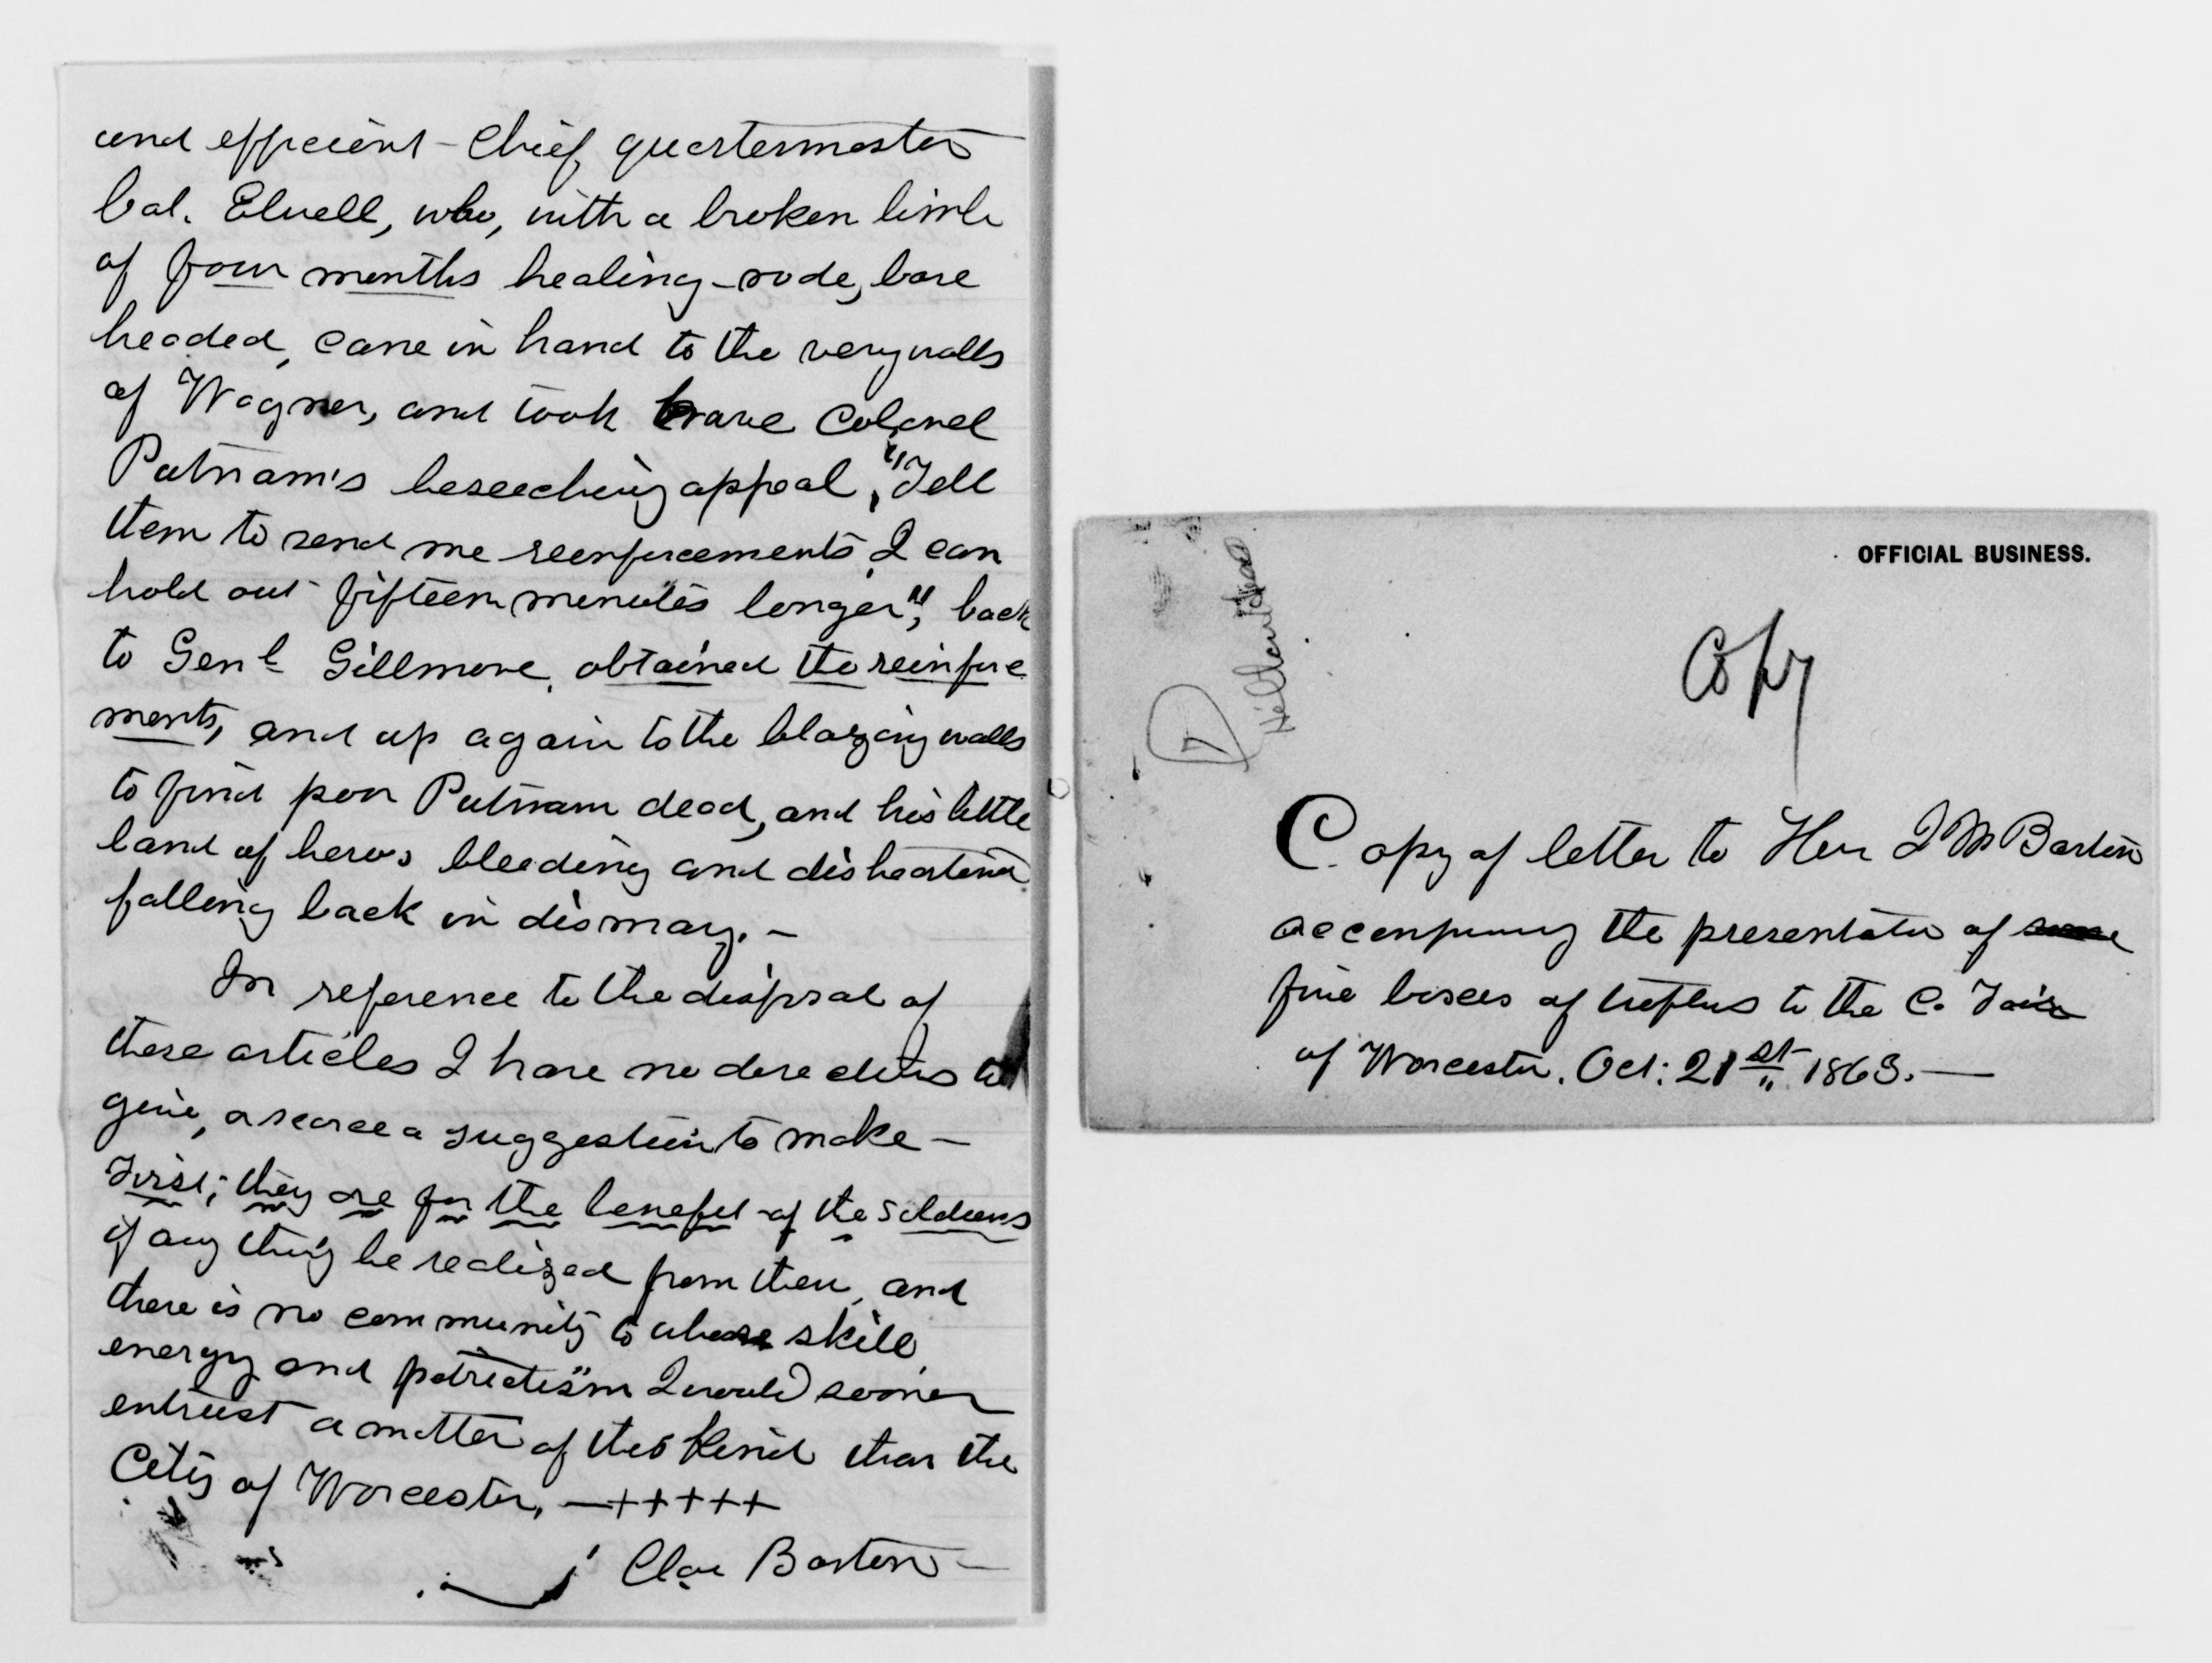 and efficient - Chief quartermaster
Col. Elwell, who, with a broken limb
of four months healing - rode, bare
headed, cane in hand to the very walls
of Wagner, and took brave Colonel
Putnam's beseeching appeal, "Tell
them to send me reenforcements, I can
hold out fifteen minutes longer", back
to Genl Gillmore, obtained the reinforce
ments, and up again to the blazing walls
to find poor Putnam dead, and his little
band of heros bleeding and disheartened
falling back in dismay. -
In reference to the disposal of
these articles I have no directions to
give, or scarce a suggestion to make -
First; they are for the benefit of the soldiers
if any thing be realized from them, and
there is no community to whose skill,
energy and patriotism I would sooner
entrust a matter of this kind than the
City of Worcester. - +++++
Clara Barton -
OFFICIAL BUSINESS.
Copy
Hilton Head
Copy of letter to Hon I M Barton
accompanying the presentation of some
five boxes of trophies to the C. Fair
of Worcester. Oct: 21st 1863. -